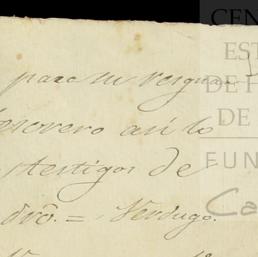 para su resguar
Tesorero así lo
testigos de
dro. = Verdugo.
CEN
EST
DE H
DE
FUN
Ca